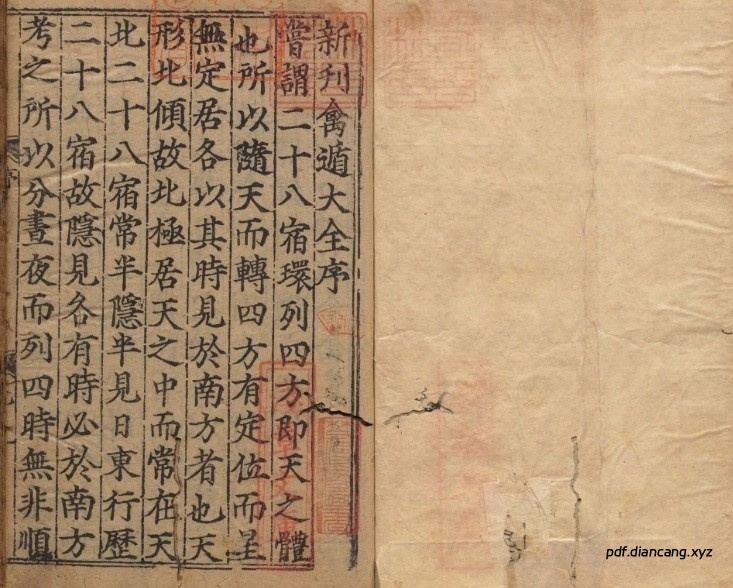 新刋禽遁大全序
嘗謂二十八宿環列四方即天之體
也所以隨天而轉四方有定位而星
無定居各以其時見於南方者也天
形北傾故北極居天之中而常在天
北二十八宿常半隱半見日東行歷
二十八宿故隱見各有時必於南方
考之所以分晝夜而列四時無非順
pdf.diancang.xyz